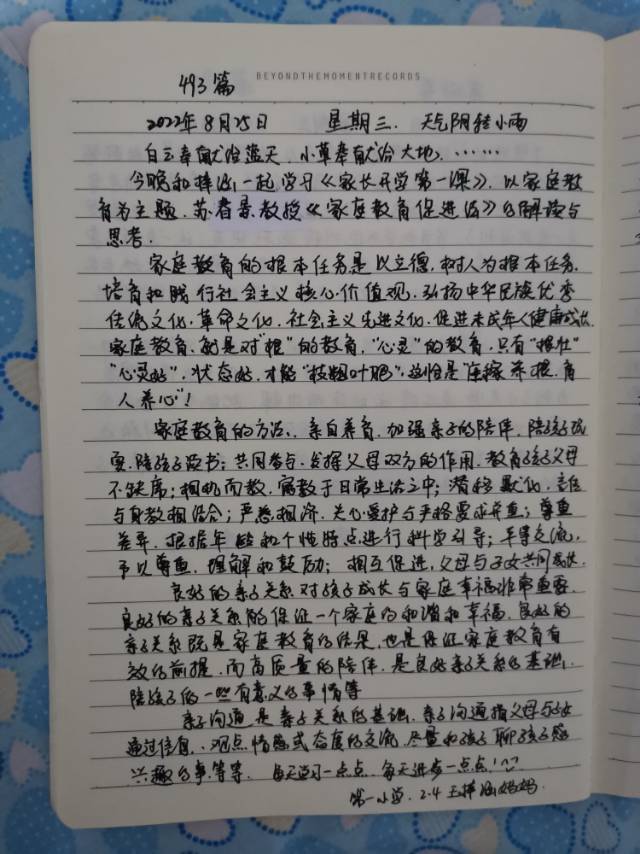 BEYONDTHEMOMENTRECORDS
493篇
2022年8月25日 星期三. 天气阴转小雨
白云奉献给蓝天. 小草奉献给大地. ……
今晚和梓涵一起学习《家长开学第一课》, 以家庭教
育为主题. 苏春景教授《家庭教育促进法》的解读与
思考.
家庭教育的根本任务是以立德. 树人为根本任务.
培育和践行社会主义核心价值观. 弘扬中华民族优秀
传统文化. 革命文化. 社会主义先进文化. 促进未成年人健康成长.
家庭教育. 就是对“根”的教育, “心灵”的教育. 只有“根壮”
“心灵好”, 状态好, 才能“枝粗叶肥”. 这恰是“庄稼养根, 育
人养心”!
家庭教育的方法. 亲自养育, 加强亲子的陪伴. 陪孩子玩
耍. 陪孩子读书; 共同参与. 发挥父母双方的作用. 教育孩子父母
不缺席; 相机而教. 寓教于日常生活之中; 潜移默化, 言传
与身教相结合; 严慈相济. 关心爱护与严格要求并重; 尊重
差异. 根据年龄和个性特点进行科学引导; 平等交流,
予以尊重. 理解和鼓励; 相互促进, 父母与子女共同成长.
良好的亲子关系对孩子成长与家庭幸福非常重要.
良好的亲子关系能保证一个家庭的和谐和幸福. 良好的
亲子关系既是家庭教育的结果, 也是保证家庭教育有
效的前提. 而高质量的陪伴. 是良好亲子关系的基础.
陪孩子的一些有意义的事情等
亲子沟通是亲子关系的基础. 亲子沟通指父母与子女
通过信息、观点. 情感或态度的交流. 尽量和孩子聊孩子感
兴趣的事等等. 每天学习一点点. 每天进步一点点!
第一小学. 2.4 王梓涵妈妈.